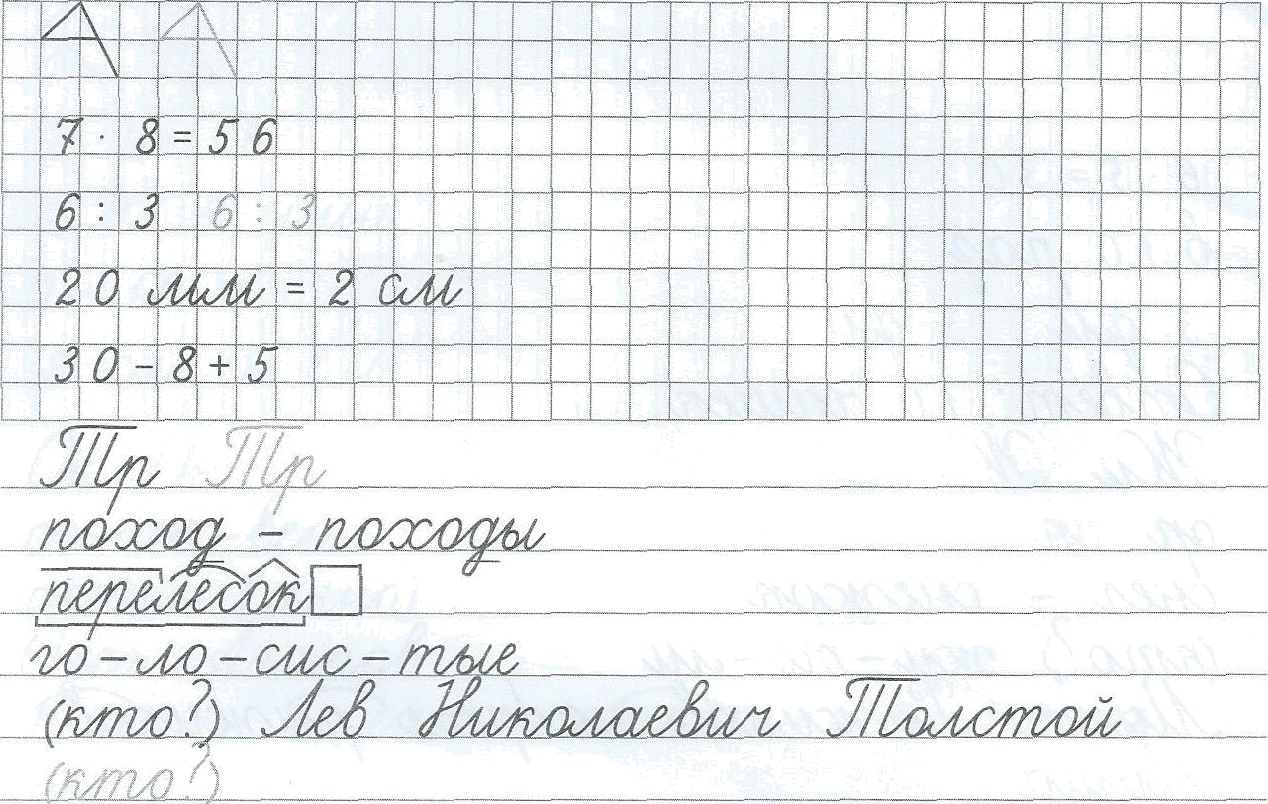 7 · 8 = 56
6 : 3 6 : 3
20 мм = 2 см
30 - 8 + 5
Тр Тр
поход - походы
перелесок
го-ло-сис-тые
(кто?) Лев Николаевич Толстой
(кто?)